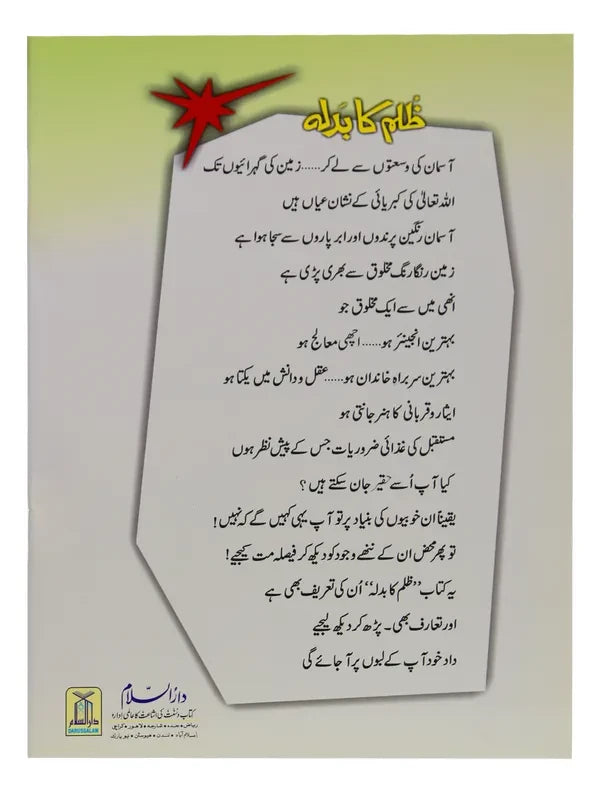 ظلم کا بدلہ
آسمان کی وسعتوں سے لے کر......زمین کی گہرائیوں تک
اللہ تعالیٰ کی کبریائی کے نشان عیاں ہیں
آسمان رنگین پرندوں اور ابر پاروں سے سجا ہوا ہے
زمین رنگا رنگ مخلوق سے بھری پڑی ہے
انھی میں سے ایک مخلوق جو
بہترین انجینئر ہو......اچھی معالج ہو
بہترین سربراہ خاندان ہو......عقل و دانش میں یکتا ہو
ایثار و قربانی کا ہنر جانتی ہو
مستقبل کی غذائی ضروریات جس کے پیش نظر ہوں
کیا آپ اُسے حقیر جان سکتے ہیں؟
یقیناً ان خوبیوں کی بنیاد پر تو آپ یہی کہیں گے کہ نہیں!
تو پھر محض ان کے ننھے وجود کو دیکھ کر فیصلہ مت کیجیے!
یہ کتاب ”ظلم کا بدلہ“ اُن کی تعریف بھی ہے
اور تعارف بھی۔ پڑھ کر دیکھ لیجیے
داد خود آپ کے لبوں پر آ جائے گی
دارُالسّلام
کتاب و سنت کی اشاعت کا عالمی ادارہ
ریاض • جدہ • شارجہ • لاہور • کراچی
اسلام آباد • لندن • ہیوسٹن • نیو یارک
دارالسلام
DARUSSALAM